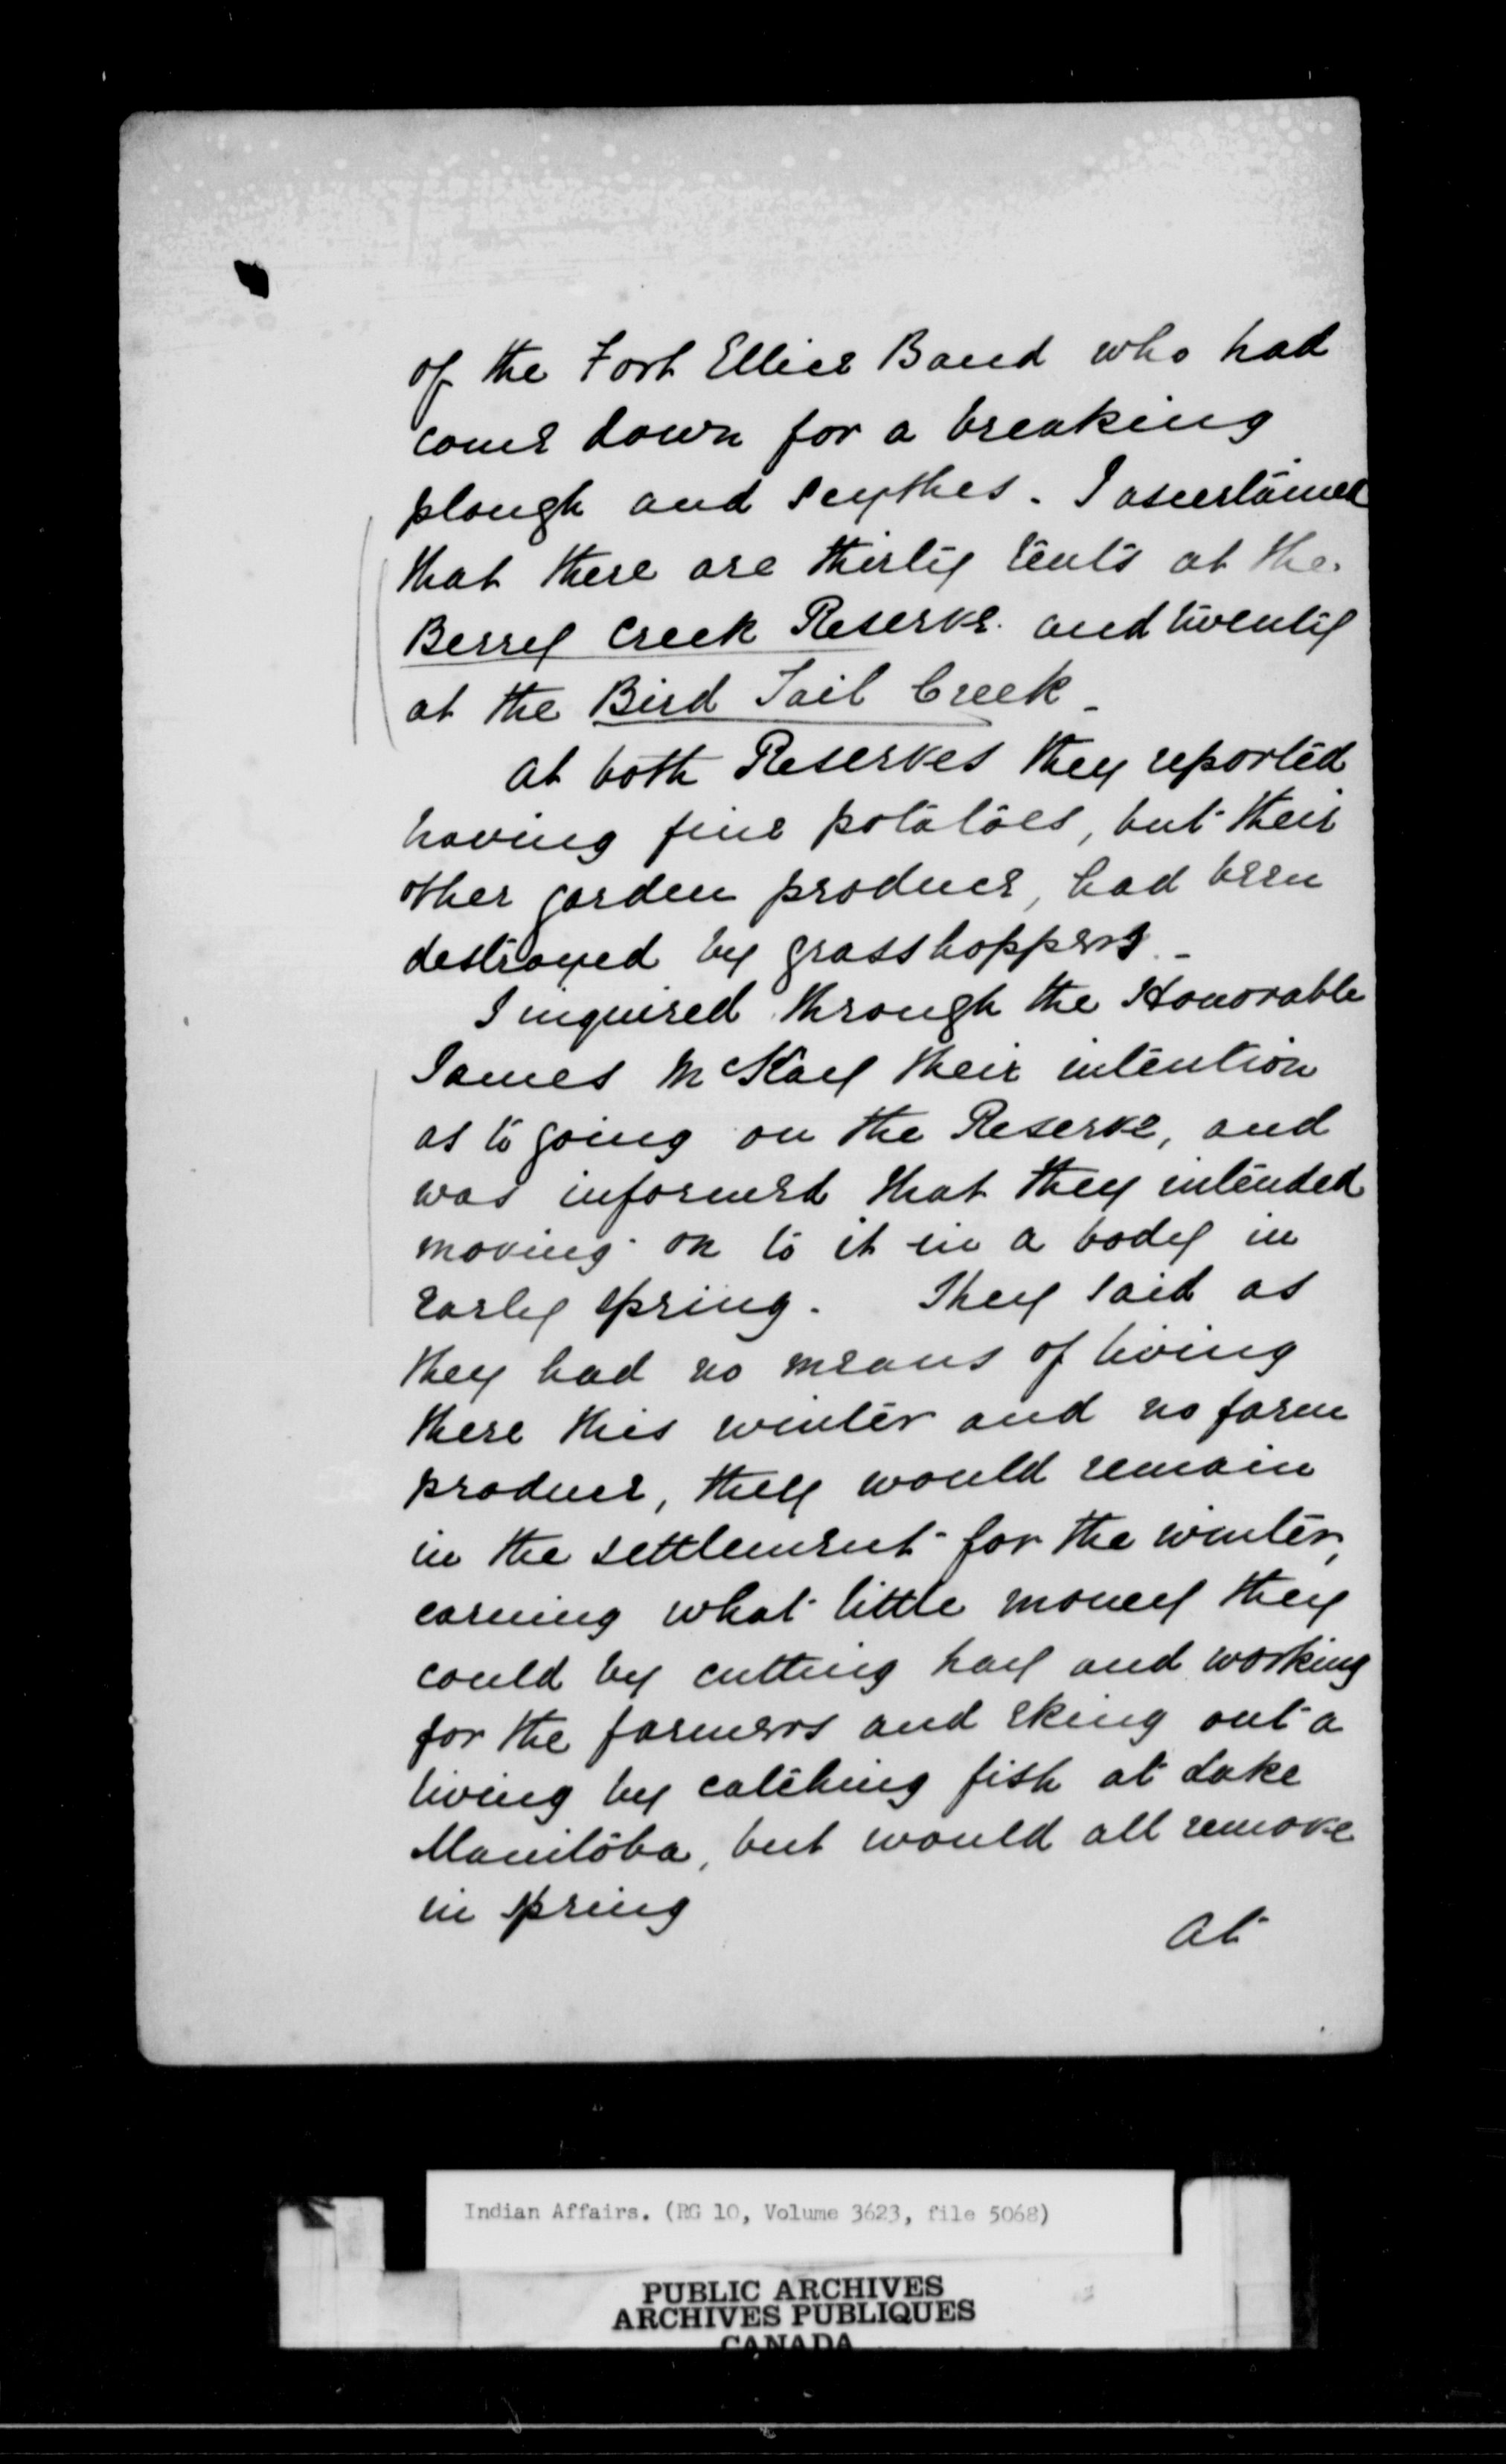 of the Fort Ellice Band who had
come down for a breaking
plough and scythes. I ascertained
that there are thirty tents at the
Berry Creek Reserve and twenty
at the Bird Tail Creek_
At both Reserves they reported
having fine potatoes, but their
other garden produce, had been
destroyed by grasshoppers._
I inquired through the Honorable
James McKay their intention
as to going on the Reserve, and
was informed that they intended
moving on to it in a body in
early spring. They said as
they had no means of living
there this winter and no farm
produce, they would remain
in the settlement for the winter,
earning what little money they
could by cutting hay and working
for the farmers and eking out a
living by catching fish at Lake
Manitoba, but would all remove
in spring
At
Indian Affairs. (RG 10, Volume 3623, file 5068)
PUBLIC ARCHIVES
ARCHIVES PUBLIQUES
CANADA